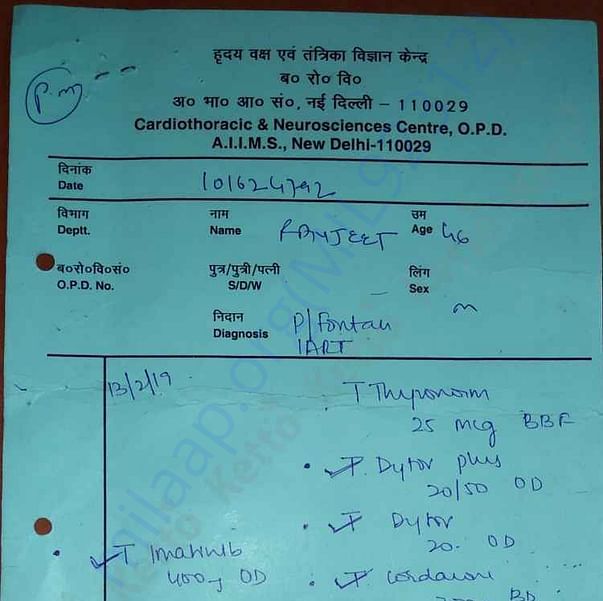 हृदय वक्ष एवं तंत्रिका विज्ञान केन्द्र
ब० रो० वि०
P.M
अ० भा० आ० सं०, नई दिल्ली – 110029
Cardiothoracic & Neurosciences Centre, O.P.D.
A.I.I.M.S., New Delhi-110029
दिनांक
Date 101624792
विभाग नाम उम
Deptt. Name Age 46
ब०रो०वि०सं० पुत्र/पुत्री/पत्नी लिंग
O.P.D. No. S/D/W Sex m
निदान
Diagnosis P/Fontan
IART
13/2/19 T Thyronorm
25 mcg BBF
T. Dytor plus
20/50 OD
T Dytor
20. OD
T Imatinib T Cordarone
400 OD BD
milaap.org
Ketto